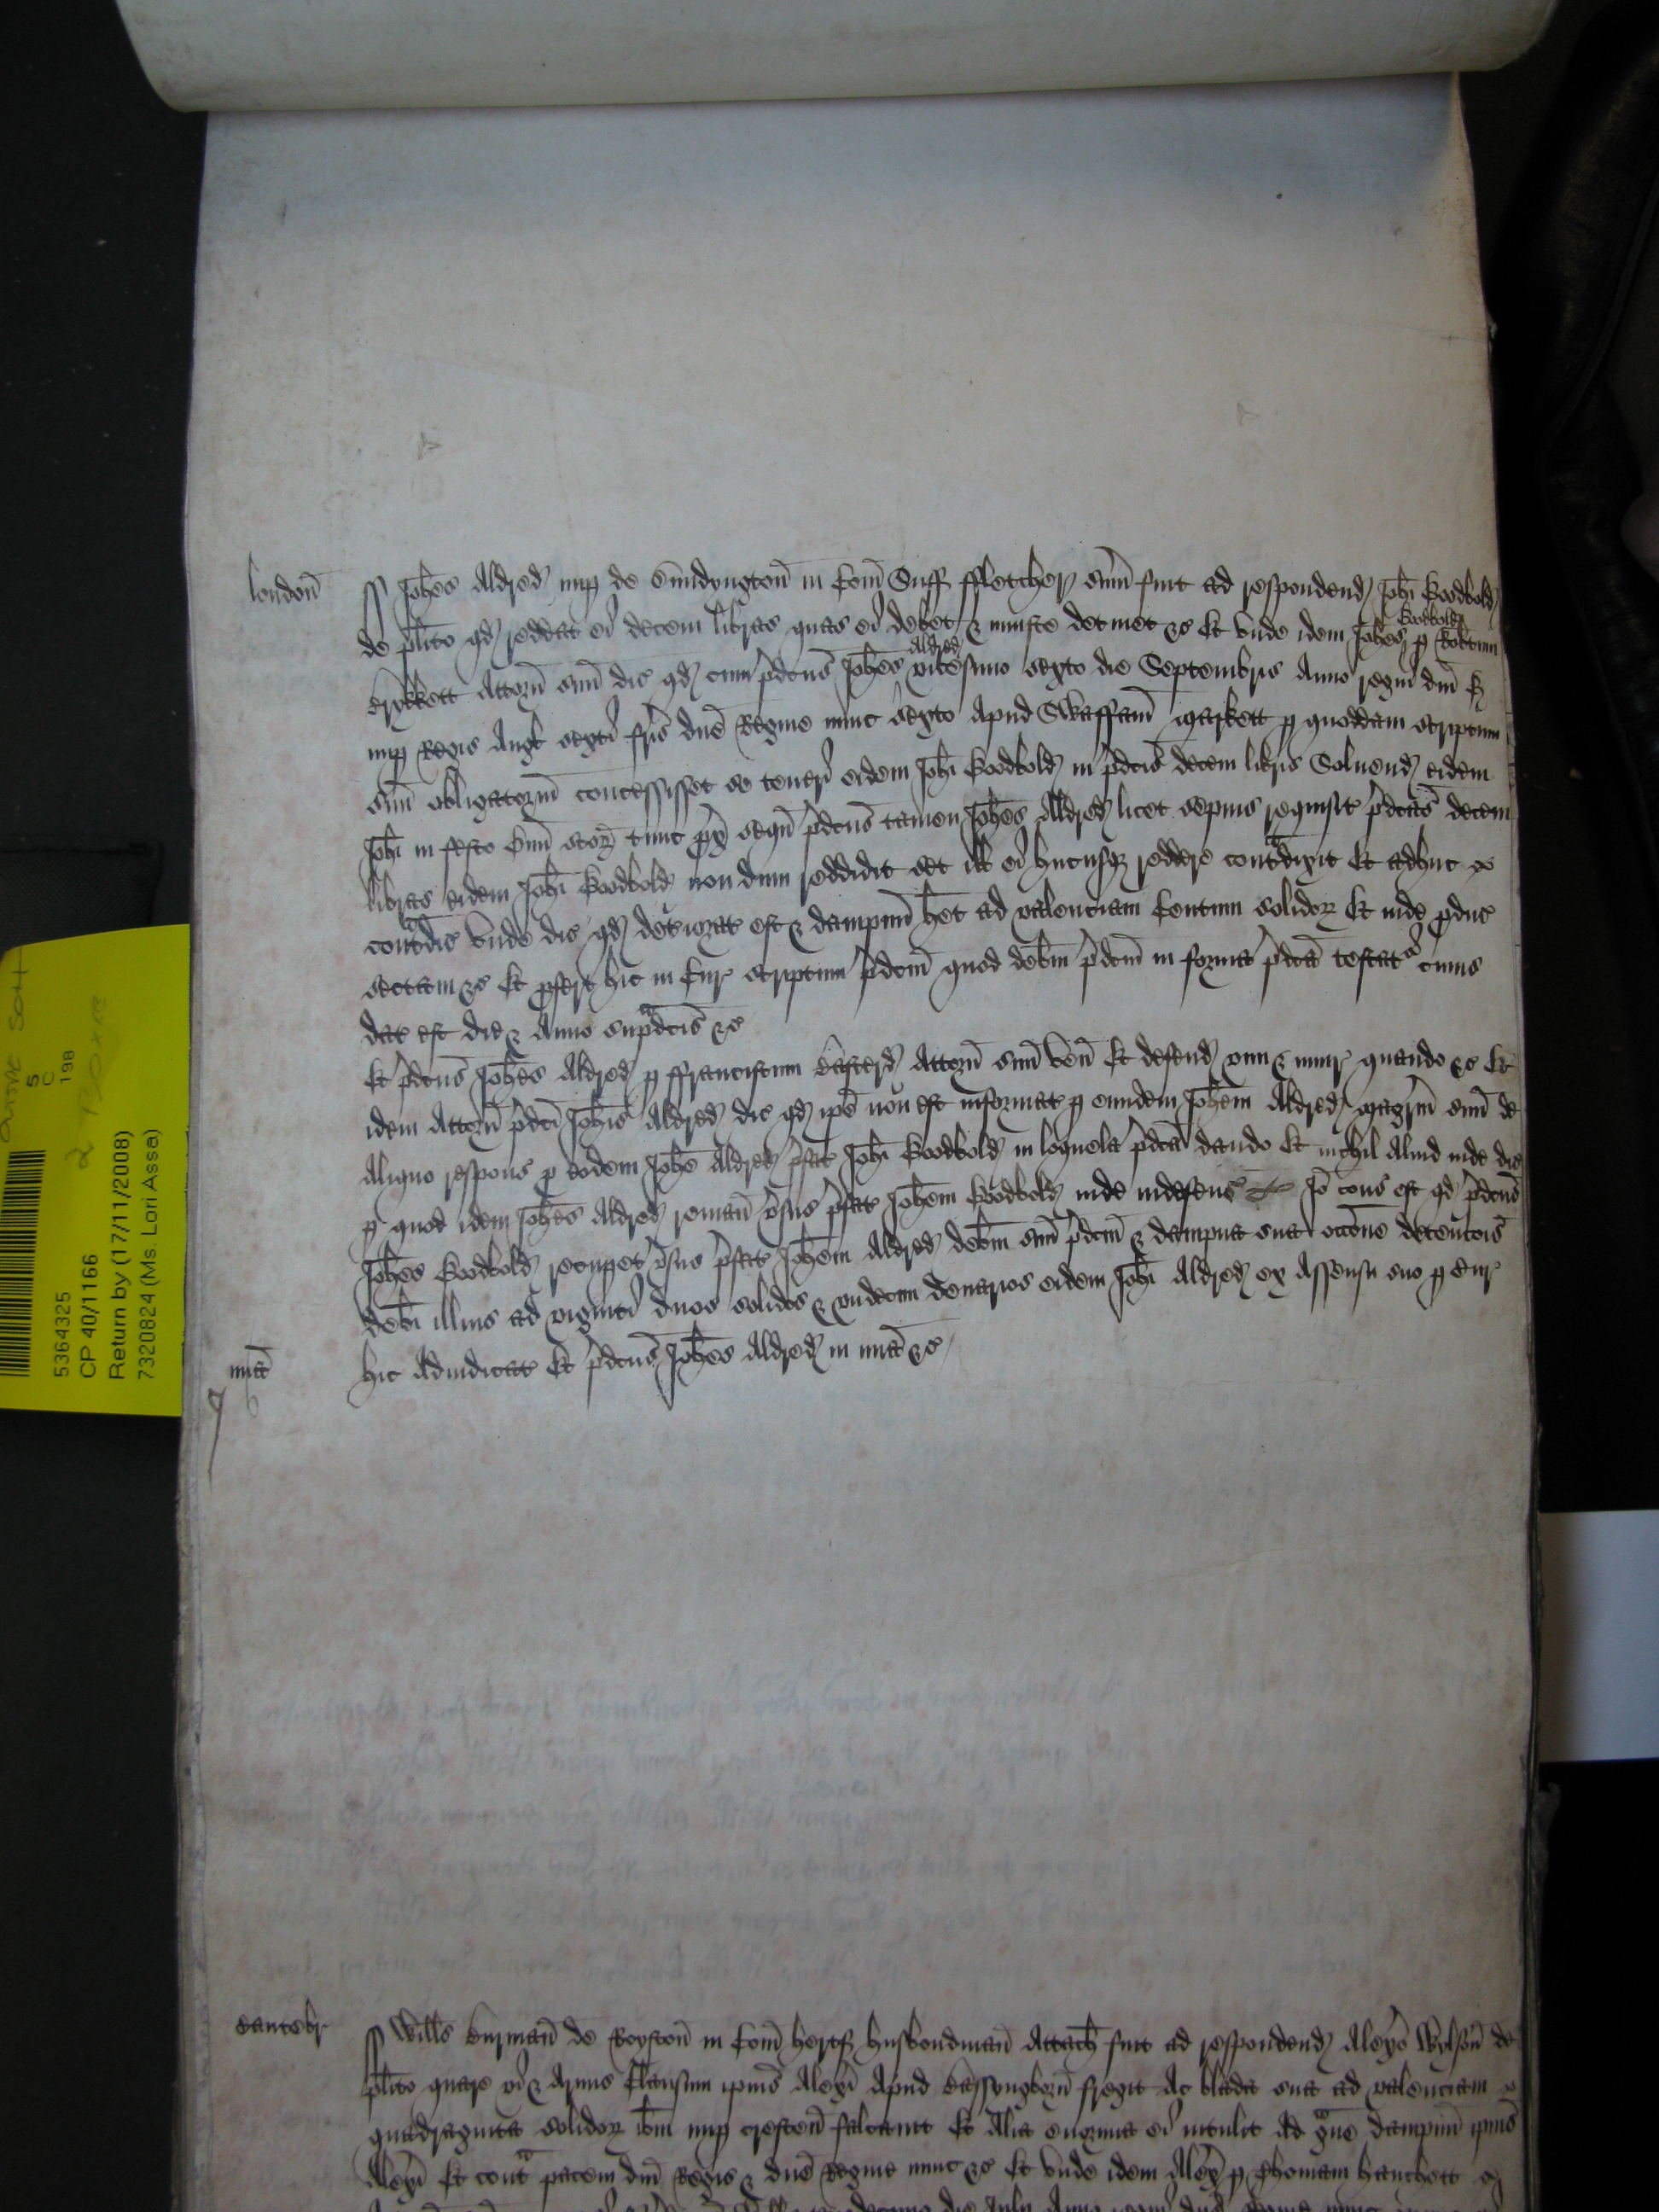 London̄ Joh̄es Aldred nup de in Com̄ Suff ffletcher sum̄ fuit ad respondend Joh̄i Goodbold
de plīto qd reddat ei decem libras quas ei debet & iniuste detinet &c Et unde idem Joh̄es Goodbold p Rob̄tum
attorn̄ suū dic qd cum p̄dc̄us Joh̄es Aldred vicesimo sexto die Septembris Anno regni dn̄i E
nup Regis Angl sexti fr̄is dn̄e Regine nunc sexto apud Swaffam̄ Markett p quoddam scriptum
suū obligatoriū concessisset se teneri eidem Joh̄i Goodbold in p̄dc̄is decem libris Soluend eidem
Joh̄i in festo Om̄i sc̄oꝝ tunc px̄ sequn̄ p̄dc̄us tamen Joh̄es Aldred licet sepius requisit p̄dc̄as decem
libras eidem Joh̄i Goodbold non dum reddidit set ill ei hucusqꝫ reddere contradixit Et adhuc
contradic Unde dic qd deteriorat est & dampnū h̄et ad valenciam Centum solidoꝝ Et inde pduc
sectam &c Et pfert hic in Cur scriptum p̄dc̄m quod deb̄m p̄dc̄m in forma p̄dc̄a testat cuius
dat est die & Anno sup̄dc̄is &c
Et p̄dc̄us Joh̄es Aldred p ffranciscum attorn̄ suū ven̄ Et defend vim & iniur quando &c Et
idem Attorn̄ p̄dc̄i Joh̄is Aldred dic qd ip̄e non est informat p eundem Joh̄em Aldred maḡrm̄ suū de
aliquo respons p eodem Joh̄e Aldred p̄fat Joh̄i Goodbold in loquela p̄dc̄a dando Et nichil aliud inde dic
p quod idem Joh̄es Aldred reman̄ v̄sus p̄fat Joh̄em Goodbold inde indefens Jō cons est qd p̄dc̄us
Joh̄es Goodbold recupet v̄sus p̄fat Joh̄em Aldred deb̄m suū p̄dc̄m & dampna sua occ̄one detenc̄ois
deb̄i illius ad viginti duos solidos & undecim denarios eidem Joh̄i Aldred ex assensu suo p Cur
mīa hic Adiudicat Et p̄dc̄us Joh̄es Aldred in mīa &c
Cantebr Will̄s de Royston̄ in Com̄ Hertf husbondman̄ Attach̄ fuit ad respondend Alexō Wylson̄ de
plīto quare vi & armis Clausum ipius Alexi apud Bassyngborn̄ fregit Ac blada sua ad valenciam
quadraginta solidoꝝ ib̄m nup crescen̄ Et Alia enormia ei intulit Ad g̃ue dampnū ipius
Alexi Et contra pacem dn̄i Regis & dn̄e Regine nunc &c Et unde idem Alex̄ p Thomam hanchett
5364325
CP 40/1166
Return by (17/11/2008)
7320824 (Ms. Lori Assa)
198
2 Boxes